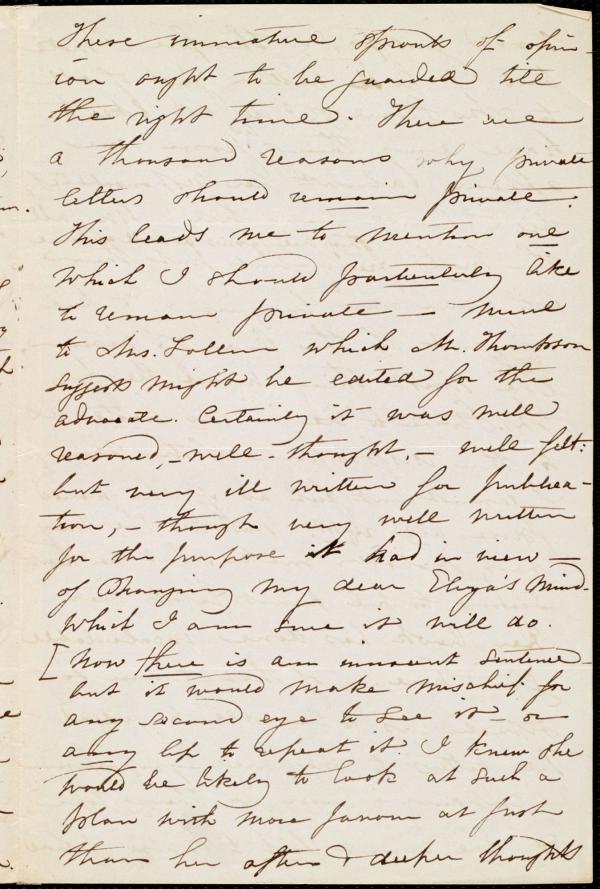 These immature sprouts of opin-
ion ought to be guarded till
the right time. There are
a thousand reasons why private
letters should remain private.
This leads me to mention one
which I should particularly like
to remain private — mine
to Mrs. Follen which Mr. Thompson
suggests might be edited for the
advocate. Certainly it was well
reasoned, - well-thought, - well felt:
but very ill written for publica-
tion, - though very well written
for the purpose it had in view —
of changing my dear Eliza's mind.
which I am sure it will do.
[Now there is an innocent sentence -
but it would make mischief for
any second eye to see it - or
any lip to repeat it. I knew she
would be likely to look at such a
plan with more favour at first
than her after & deeper thoughts